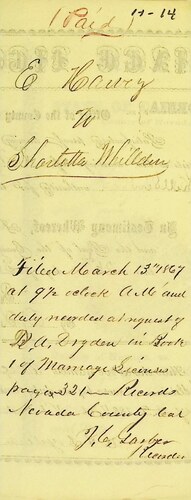 (Paid)
11-14
E Harvey
to
Sharlotta Whillden
Filed March 13th 1867
at 9½ oclock A.M and
duly recorded at request of
D. A. Ogden in Book
1 of Marriage Licenses
page 321 — Records
Nevada County Cal
Recorder